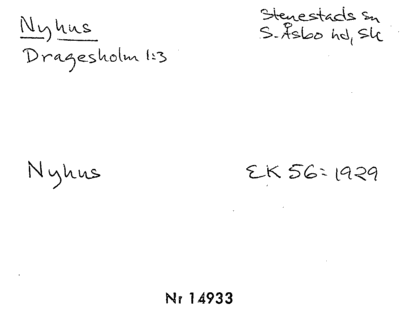 Nyhus
Stenestads sn
Dragesholm 1:3
S. Åsbo hd, Sk
Nyhus
EK 56: 1929
Nr 14933